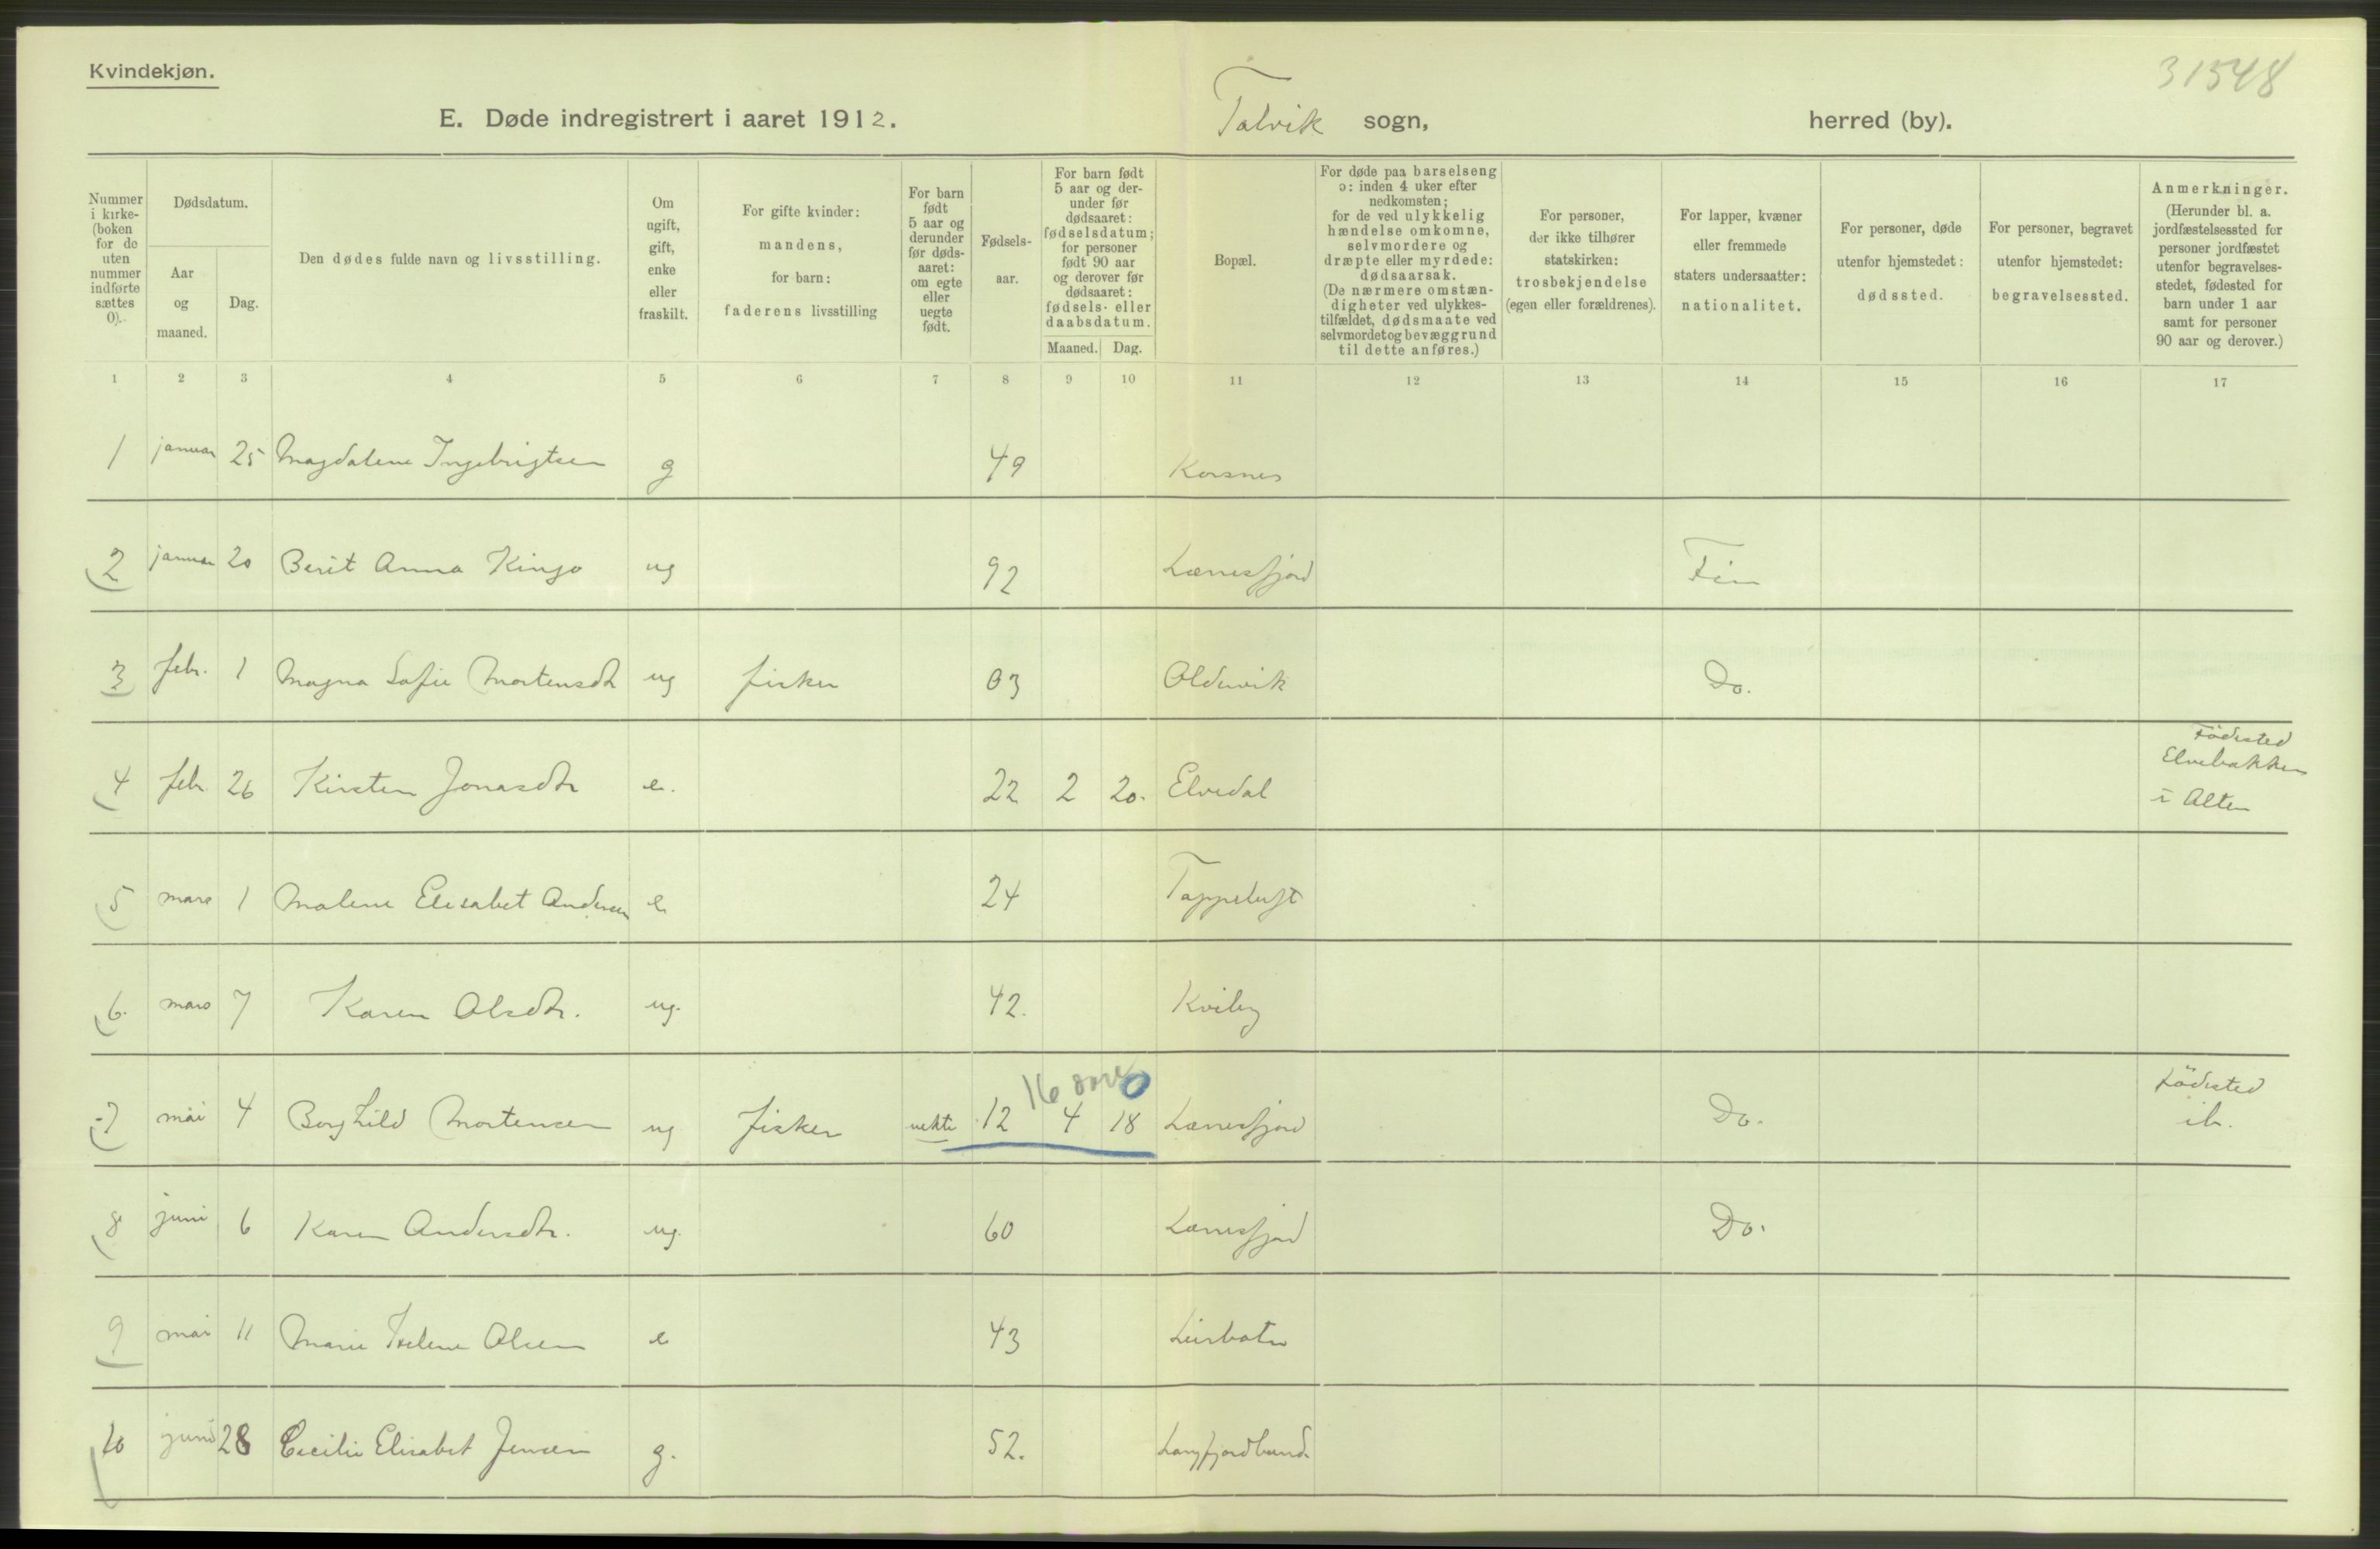 Kvindekjøn.
31548
E. Døde indregistrert i aaret 1912.
Talvik sogn,
herred (by).
Nummer i kirke-(boken for de uten nummer indførte sættes 0).
Dødsdatum.
Aar og maaned.
Dag.
Den dødes fulde navn og livsstilling.
Om ugift, gift, enke eller fraskilt.
For gifte kvinder: mandens, for barn: faderens livsstilling
For barn født 5 aar og derunder før døds-aaret: om egte eller uegte født.
Fødsels-aar.
For barn født 5 aar og der-under før dødsaaret: fødselsdatum; for personer født 90 aar og derover før dødsaaret: fødsels- eller daabsdatum.
Maaned. Dag.
Bopæl.
For døde paa barselseng ɔ: inden 4 uker efter nedkomsten; for de ved ulykkelig hændelse omkomne, selvmordere og dræpte eller myrdede: dødsaarsak. (De nærmere omstæn-digheter ved ulykkes-tilfældet, dødsmaate ved selvmordet og bevæggrund til dette anføres.)
For personer, der ikke tilhører statskirken: trosbekjendelse (egen eller forældrenes).
For lapper, kvæner eller fremmede staters undersaatter: nationalitet.
For personer, døde utenfor hjemstedet: dødssted.
For personer, begravet utenfor hjemstedet: begravelsessted.
Anmerkninger. (Herunder bl. a. jordfæstelsessted for personer jordfæstet utenfor begravelses-stedet, fødested for barn under 1 aar samt for personer 90 aar og derover.)
1 2 3 4 5 6 7 8 9 10 11 12 13 14 15 16 17
1 januar 25 Magdalene Ingebrigtsen g 49 Korsnes
2 januar 20 Berit Anna Kingo ug 92 Lærresfjord Fin
3 febr. 1 Magna Sofie Mortensdtr ug fisker 03 Oldervik Do.
4 febr. 26 Kirsten Jonasdtr e. 22 2 20. Elvedal Födested Elvebakken i Alten
5 mars 1 Malene Elisabet Andersen e. 24 Tappeluft
6. mars 7 Karen Olsdtr. ug. 42. Kviby
16
0
7 mai 4 Borghild Mortensen ug fisker uekte 12 4 18 Lærresfjord Do. Födested ib.
8 juni 6 Karen Andersdtr. ug. 60 Lærresfjord Do.
9 mai 11 Marie Helene Olsen e 43 Leirbotn
10 juni 28 Cecilie Elisabet Jensen g. 52. Langfjordbund.